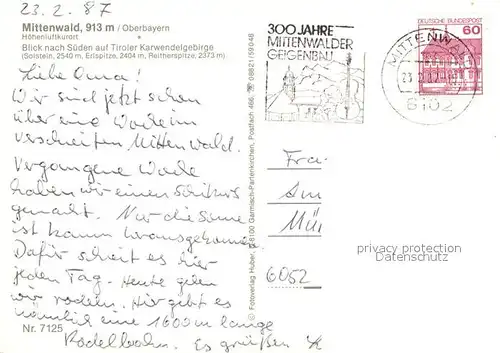 23.2.87
Mittenwald, 913 m / Oberbayern
Höhenluftkurort
Blick nach Süden auf Tiroler Karwendelgebirge
(Solstein, 2540 m, Erlspitze, 2404 m, Reitherspitze, 2373 m)
Liebe Oma!
Wir sind jetzt schon
über eine Woche im
verschneiten Mittenwald.
Vergangene Woche
haben wir einen Schikurs
gemacht. Nur die Sonne
ist kaum herausgekommen.
Dafür schneit es hier
jeden Tag. Heute gehen
wir rodeln. Hier gibt es
nämlich eine 1600 m lange
Rodelbahn. Es grüßen
Nr. 7125
© Fotoverlag Huber, D-8100 Garmisch-Partenkirchen, Postfach 466, ☎ 08821/59048
300 JAHRE
MITTENWALDER
GEIGENBAU
MITTENWALD
8102
DEUTSCHE BUNDESPOST
60
Fra
Am
Mü
6052
privacy protection
Datenschutz